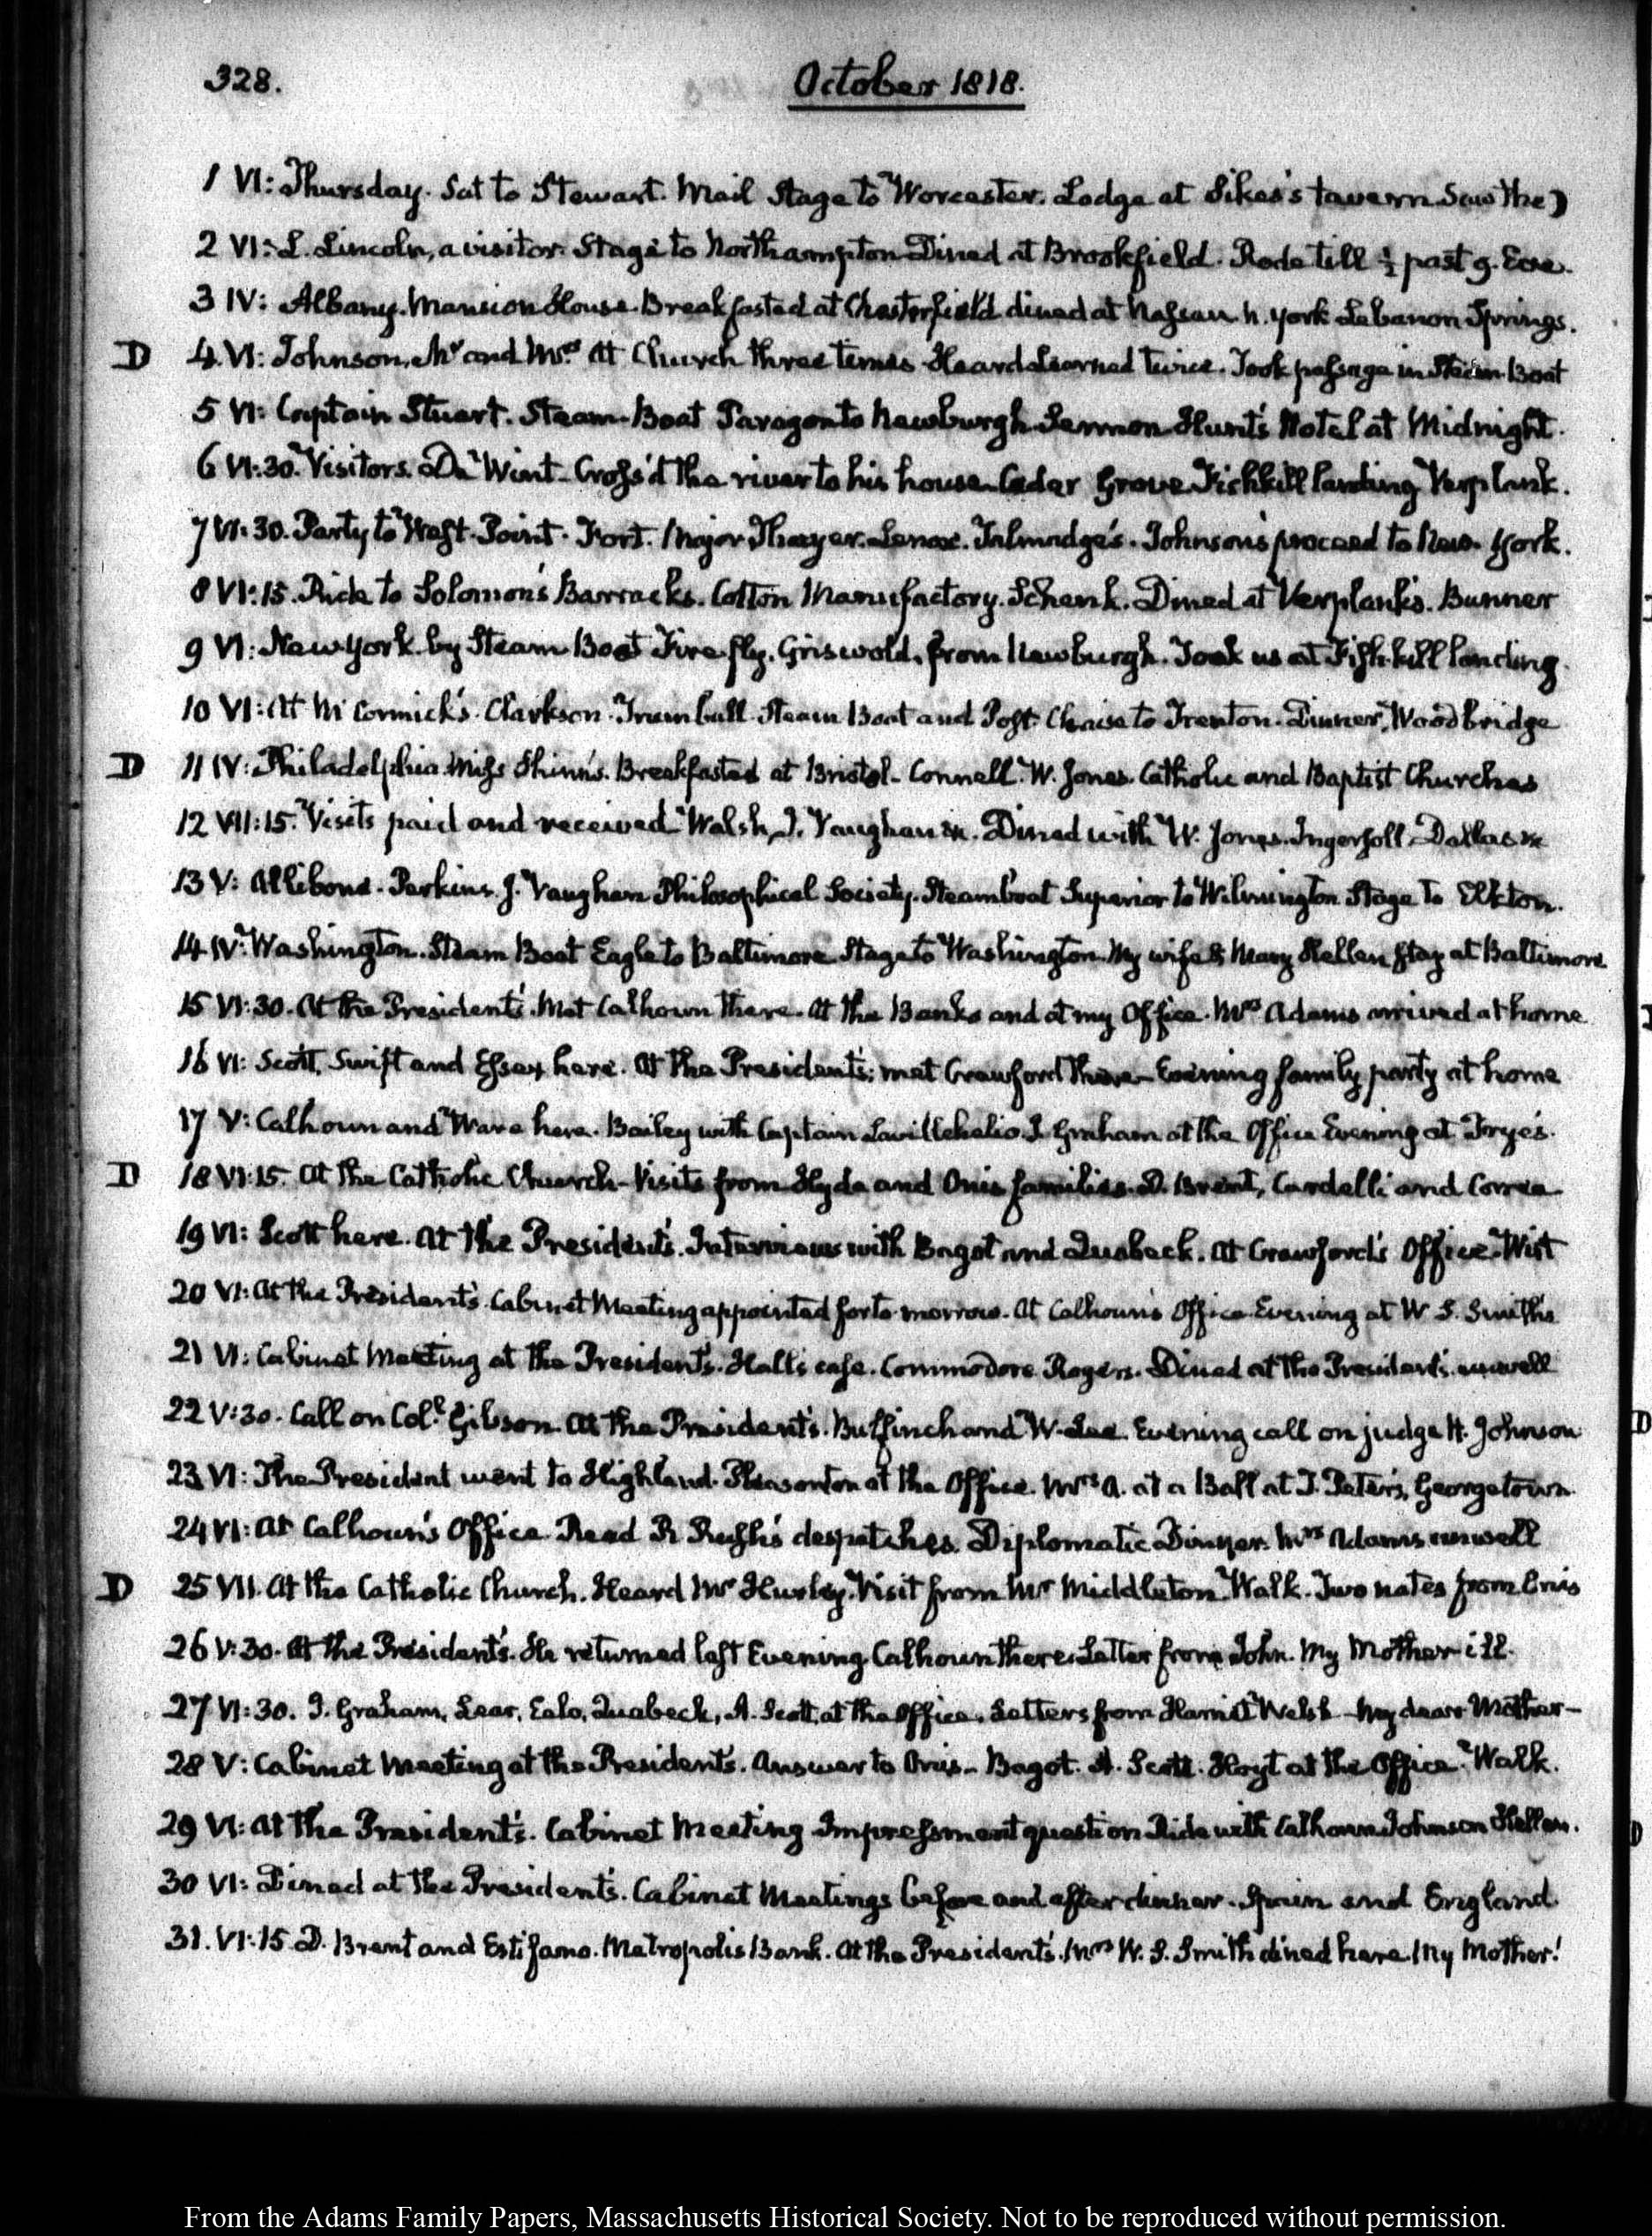 328.
October 1818.
1 VI: Thursday. Sat to Stewart. Mail Stage to Worcester. Lodge at Sikes's tavern Saw the )
2 VI: L. Lincoln, a visitor. Stage to Northampton Dined at Brookfield. Rode till ½ past 9. Eve.
3 IV: Albany. Mansion House. Breakfasted at Chesterfield dined at Nassau N. York Lebanon Springs.
D 4. VI: Johnson, Mr and Mrs. At Church three times Heard Learned twice. Took passage in Steam-Boat
5 VI: Captain Stuart. Steam-Boat Paragon to Newburgh Sermon Hunt's Hotel at Midnight.
6 VI:30. Visitors. De Wint. Cross'd the river to his house. Cedar Grove Fishkill landing Verplank.
7 VI:30. Party to West-Point. Fort. Major Thayer. Lenox. Talmadge's. Johnsons proceed to New-York.
8 VI:15. Ride to Solomon's Barracks. Cotton Manufactory. Schenk. Dined at Verplank's. Bunner
9 VI: New York by Steam Boat Fire fly. Griswold, from Newburgh. Took us at Fish-kill landing.
10 VI: At McCormick's. Clarkson. Trumbull. Steam Boat and Post Chaise to Trenton. Dinner, Woodbridge
D 11 IV: Philadelphia. Miss Shinn's. Breakfasted at Bristol. Connell. W. Jones. Catholic and Baptist Churches
12 VII:15. Visits paid and received Walsh, J. Vaughan &c. Dined with W. Jones. Ingersoll. Dallas &c
13 V: Allibone. Perkins. J. Vaughan Philosophical Society. Steamboat Superior to Wilmington Stage to Elkton.
14 IV: Washington. Steam Boat Eagle to Baltimore Stage to Washington. My wife & Mary Hellen stay at Baltimore
15 VI:30. At the President's. Met Calhoun there. At the Banks and at my Office. Mrs Adams arrived at home
16 VI: Scott, Swift and Essex here. At the President's; met Crawford there. Evening family party at home
17 V: Calhoun and Ware here. Bailey with Captain J. Graham at the Office Evening at Forye's.
D 18 VI:15. At the Catholic Church. Visits from Hyde and Onis families. D. Brent, Cardelli and Correa
19 VI: Scott here. At the President's. Interviews with Bagot and Quabeck. At Crawford's Office. Wirt
20 VI: At the President's. Cabinet Meeting appointed for to-morrow. At Calhoun's Office. Evening at W S. Smith's
21 VI: Cabinet Meeting at the President's. Hall's case. Commodore Rogers. Dined at the President's. unwell
22 V:30. Call on Col. Gibson. At the President's. Bulfinch and W. Lee. Evening call on judge H. Johnson
23 VI: The President went to Highland. Pleasonton at the Office. Mrs A. at a Ball at T. Peter's, Georgetown
24 VI: At Calhoun's Office. Read R Rush's despatches. Diplomatic Dinner. Mrs Adams unwell
D 25 VII. At the Catholic Church. Heard Mr Hurley. Visit from Mr Middleton. Walk. Two notes from Onis
26 V:30. At the President's. He returned last Evening. Calhoun there. Letter from John. My Mother ill.
27 VI:30. J. Graham, Lear, Ealo, Quabeck, A. Scott at the Office. Letters from Harriet Welsh. My dear Mother—
28 V: Cabinet Meeting at the President's. Answer to Onis. Bagot. A. Scott. Hoyt at the Office. Walk.
29 VI: At the President's. Cabinet Meeting Impressment question Ride with Calhoun Johnson Hellen.
30 VI: Dined at the President's. Cabinet Meetings before and after dinner. Spain and England.
31. VI:15. D. Brent and Estifano. Metropolis Bank. At the President's. Mrs W. S. Smith dined here. My Mother!
From the Adams Family Papers, Massachusetts Historical Society. Not to be reproduced without permission.